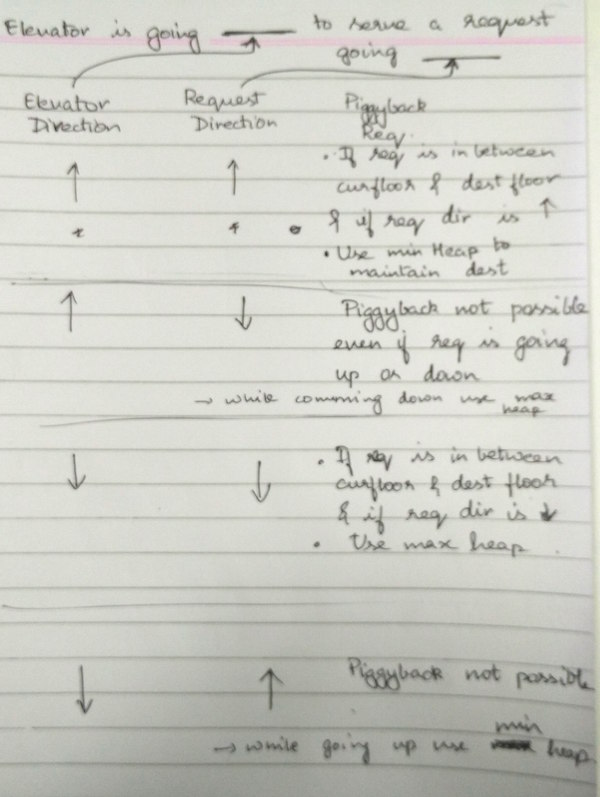 Elevator is going ______ to serve a request
going ______
Elevator Request Piggyback
Direction Direction Req.
• If req is in between
↑ ↑ curfloor & dest floor
* * & if req dir is ↑
• Use min Heap to
maintain dest
↑ ↓ Piggyback not possible
even if req is going
up or down
→ while comming down use max
heap
• If req is in between
↓ ↓ curfloor & dest floor
& if req dir is ↓
• Use max heap.
↓ ↑ Piggyback not possible
→ while going up use min heap